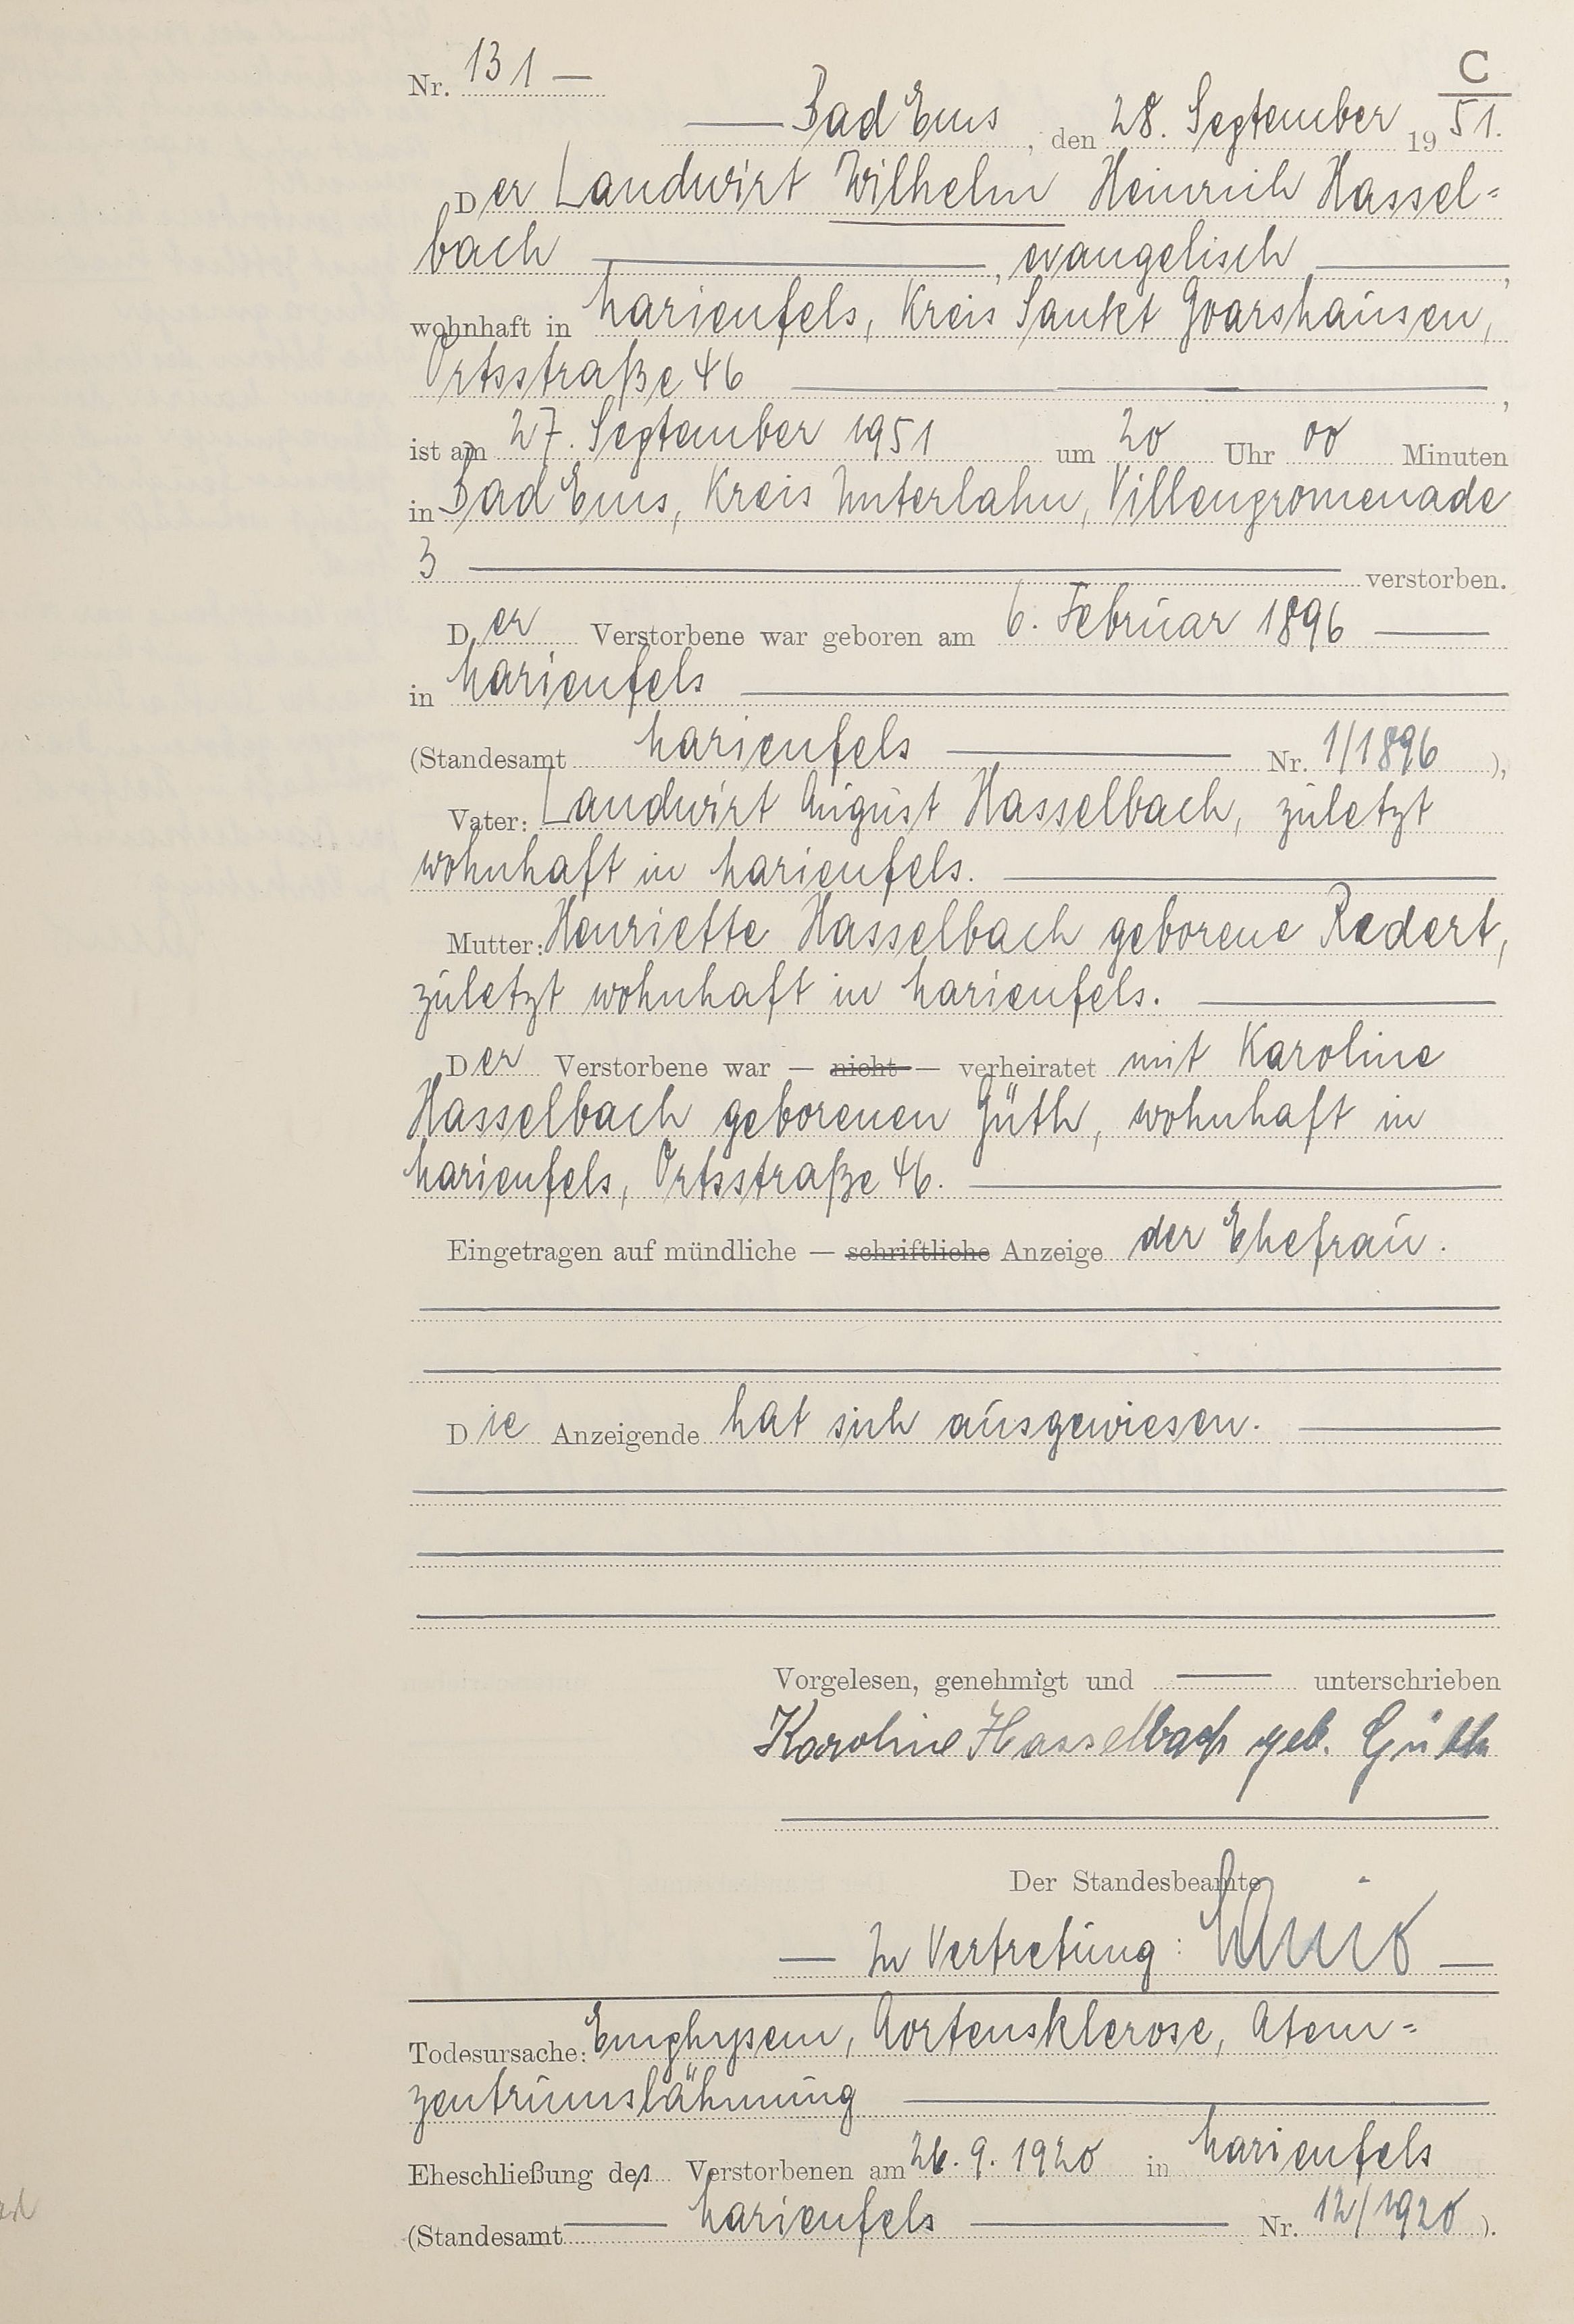 C
Nr. 131 —
— Bad Ems, den 28. September 1951.
Der Landwirt Wilhelm Heinrich Hassel-
bach —, evangelisch —,
wohnhaft in Marienfels, Kreis Sankt Goarshausen,
Ortsstraße 46 —,
ist am 27. September 1951 um 20 Uhr 00 Minuten
in Bad Ems, Kreis Unterlahn, Villenpromenade
3 — verstorben.
Der Verstorbene war geboren am 6. Februar 1896 —
in Marienfels —
(Standesamt Marienfels — Nr. 1/1896),
Vater: Landwirt August Hasselbach, zuletzt
wohnhaft in Marienfels. —
Mutter: Henriette Hasselbach geborene Redert,
zuletzt wohnhaft in Marienfels. —
Der Verstorbene war — nicht — verheiratet mit Karoline
Hasselbach geborenen Güth, wohnhaft in
Marienfels, Ortsstraße 46. —
Eingetragen auf mündliche — schriftliche Anzeige der Ehefrau.
Die Anzeigende hat sich ausgewiesen. —
Vorgelesen, genehmigt und — unterschrieben
Karoline Hasselbach geb. Güth
Der Standesbeamte
— In Vertretung: —
Todesursache: Emphysem, Aortensklerose, Atem-
zentrumslähmung —
Eheschließung des Verstorbenen am 26. 9. 1920 in Marienfels
(Standesamt — Marienfels — Nr. 12/1920).